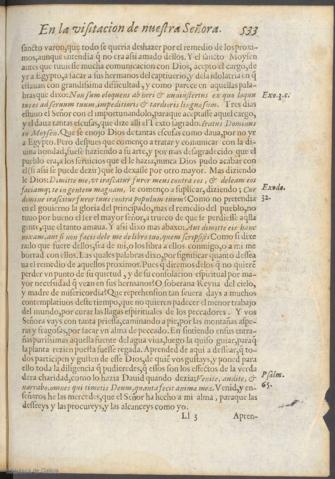 En la visitacion de nuestra Señora. 533
sancto varon, que todo se queria deshazer por el remedio de los proxi-
mos, aunque entendia q̃ no era assi amado dellos. Y el sancto Moysen
antes que tuuiesse mucha comunicacion con Dios, acepto el cargo, de
yr a Egypto, a sacar a sus hermanos del captiuerio, y dela idolatria en q̃
estauan con grandissima dificultad, y como parece en aquellas pala-
bras que dixo: Non sum eloquens ab heri & nudiustertius ex quo loquu
tus es ad seruum tuum, impeditioris & tardioris linguæ sum. Tres dias
estuuo el Señor con el importunandolo, para que aceptasse aquel cargo,
y el daua tantas escusas, que dize alli el Texto sagrado. Iratus Dominus
in Moysen. Que se enojo Dios de tantas escusas como daua, por no yr
a Egypto. Pero despues que començo a tratar y comunicar con la di-
uina bondad, fuese haziendo a su arte, y por mas desagradecido que el
pueblo era, a los seruicios que el le hazia, nunca Dios pudo acabar con
el (si assi se puede dezir) que lo dexasse por otro mayor. Mas diziendo
le Dios: Dimitte me, vt irascatur furor meus contra eos, & deleam eos
faciamq; te in gentem magnam. le començo a suplicar, diziendo; Cur
domine irascitur furor tuus contra populum tuum? Como no pretendia
en el gouierno la gloria del principado, mas el remedio del pueblo, no
tuuo por bueno el ser el mayor señor, a trueco de que se perdiesse aq̃lla
gente, que el tanto amaua. Y assi dixo mas abaxo. Aut dimitte eis hanc
noxam, aut si non facis dele me de libro tuo, quem scripsisti. Como si dixe
rado que fuere dellos, sea de mi, o los libra a ellos conmigo, o a mi me
borrad con ellos. Las quales palabras dixo, por significar quanto dessea
ua el remedio de aquellos proximos. Pues q̃ diremos delos q̃ no quierẽ
perder vn punto de su quietud, y de su consolacion espiritual por ma-
yor necessidad q̃ vean en sus hermanos? O soberana Reyna del cielo,
y madre de misericordia! Que reprehension tan seuera days a muchos
contemplatiuos deste tiempo, que no quieren padecer el menor trabajo
del mundo, por curar las llagas espirituales de los peccadores. Y vos
Señora vays con tanta priessa, caminando a pie, por las montañas aspe-
ras y fragosas, por sacar vn alma de peccado. En sintiendo en sus entra-
ñas purissimas aquella fuente del agua viua, luego la quiso guiar, para q̃
la planta rezien puesta fuesse regada. Aprended de aqui a dessear, q̃ to-
dos participen y gusten de esse Dios, de quiẽ vos gustays, y poned para
ello toda la diligencia q̃ pudieredes, q̃ estos son los effectos de la verda
dera charidad, como lo hazia Dauid quando dezia: Venite, audite, &
narrabo, omnes qui timetis Deum, quanta fecit animæ meæ. Venid, y en-
señaros he las mercedes, que el Señor ha hecho a mi alma, para que las
desseeys y las procureys, y las alcanceys como yo.
Ll 3 Apren-
Exo. 3. c.
Exodo.
32.
Psalm.
65.